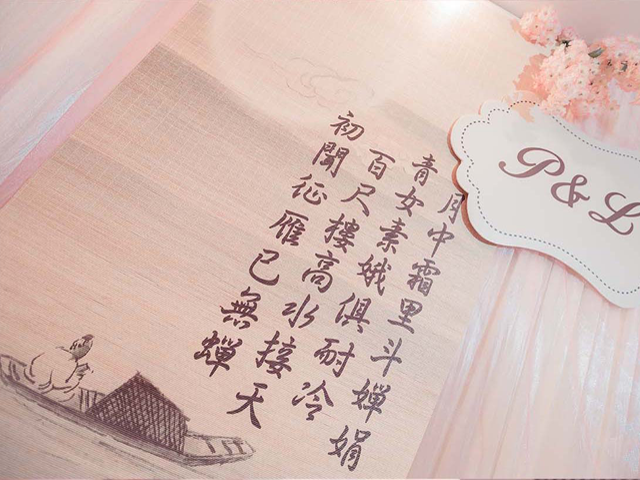 初聞征雁已無蟬
百尺樓高水接天
青女素娥俱耐冷
月中霜里斗嬋娟
P&L